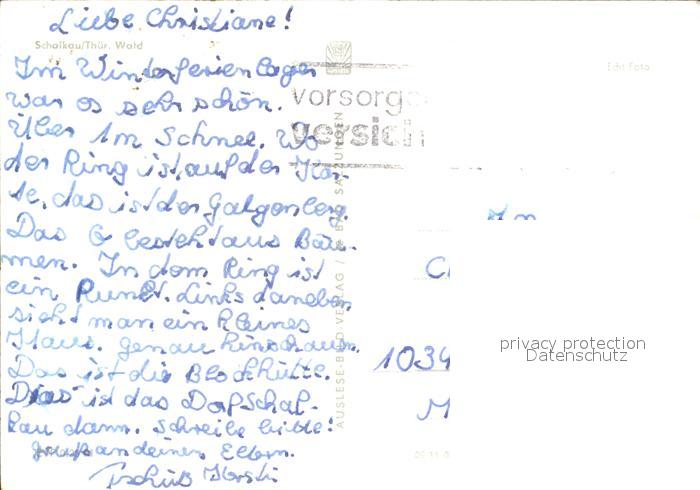 Liebe Christiane!
Schalkau/Thür. Wald
Echt Foto
Im Winterferienlager
war es sehr schön.
Über 1m Schnee. Wo
der Ring ist, auf der Kar-
te, das ist der Galgenberg.
Das G besteht aus Bäu-
men. In dem Ring ist
ein Punkt. Links daneben
sieht man ein kleines
Haus. genau hinschauen.
Das ist die Blockhütte.
Das ist das Dorf Schal-
kau dann. Schreibe bitte!
Gruß an deinen Eltern.
Tschüß
vorsorge
versich
AUSLESE-BILD-VERLAG / BAD SALZUNGEN
An
C
1034
M
privacy protection
Datenschutz